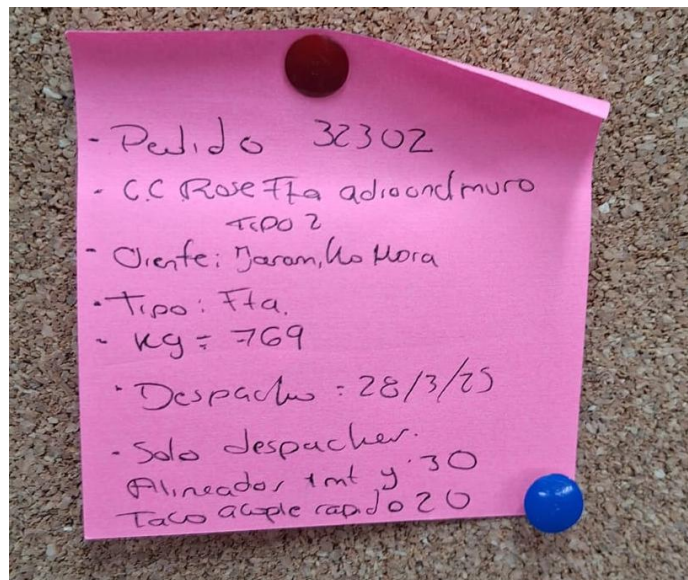 - Pedido 32302
- C.C Rose Fta adicional muro
TIPO 2
- Cliente: Jaramillo Mora
- Tipo: Fta.
- Kg = 769
- Despacho = 28/3/25
- Solo despachar.
Alineador 1mt y 30
Taco acople rapido 20